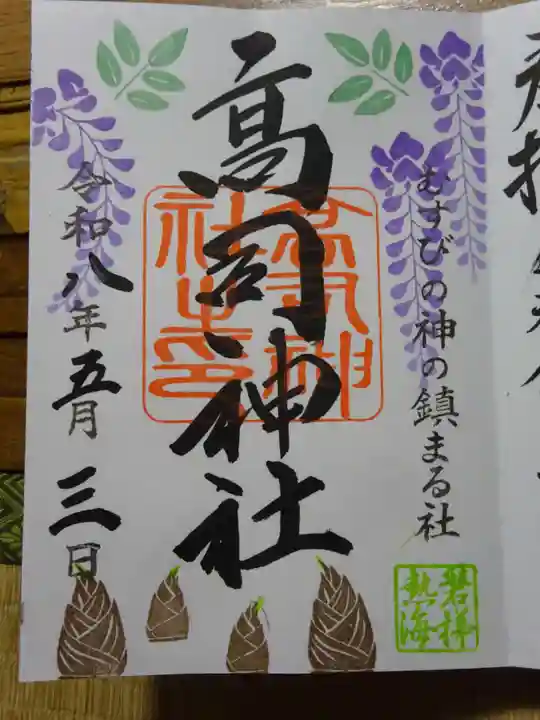 むすびの神の鎮まる社
高司神社
令和八年五月三日
磐梯
熱海